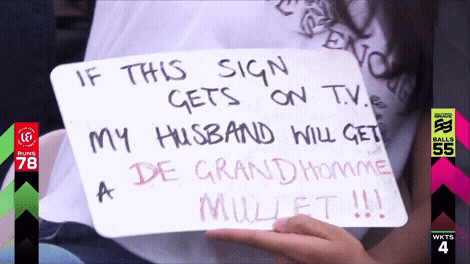 IF THIS SIGN
GETS ON T.V.
MY HUSBAND WILL GET
A DE GRANDHOMME
MULLET !!!
RUNS
78
BALLS
55
WKTS
4